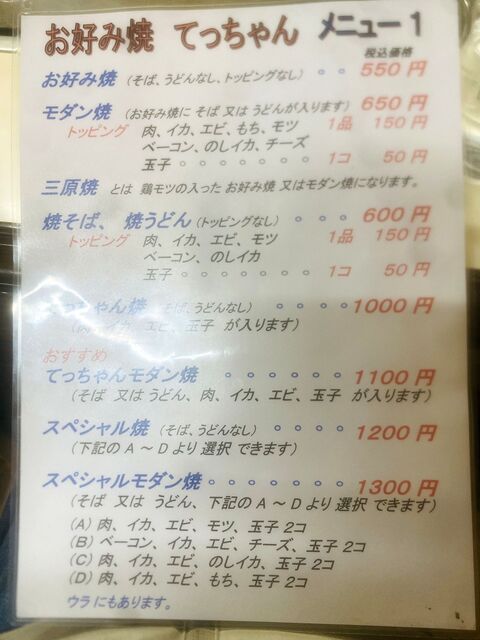 お好み焼 てっちゃん メニュー1
税込価格
お好み焼 (そば、うどんなし、トッピングなし) 。。 550円
モダン焼 (お好み焼に そば 又は うどんが入ります) 650円
トッピング 肉、イカ、エビ、もち、モツ 1品 150円
ベーコン、のしイカ、チーズ
玉子 。。。。。。。 1コ 50円
三原焼 とは 鶏モツの入った お好み焼 又はモダン焼になります。
焼そば、焼うどん (トッピングなし) 。。。 600円
トッピング 肉、イカ、エビ、モツ 1品 150円
ベーコン、のしイカ
玉子 。。。。。。。 1コ 50円
てっちゃん焼 (そば、うどんなし) 。。。。 1000円
(肉、イカ、エビ、玉子 が入ります)
おすすめ
てっちゃんモダン焼 。。。。。 1100円
(そば 又は うどん、肉、イカ、エビ、玉子 が入ります)
スペシャル焼 (そば、うどんなし) 。。。。 1200円
(下記の A ～ D より 選択 できます)
スペシャルモダン焼 。。。。。。 1300円
(そば 又は うどん、下記の A ～ D より 選択 できます)
(A) 肉、イカ、エビ、モツ、玉子 2コ
(B) ベーコン、イカ、エビ、チーズ、玉子 2コ
(C) 肉、イカ、エビ、のしイカ、玉子 2コ
(D) 肉、イカ、エビ、もち、玉子 2コ
ウラ にもあります。